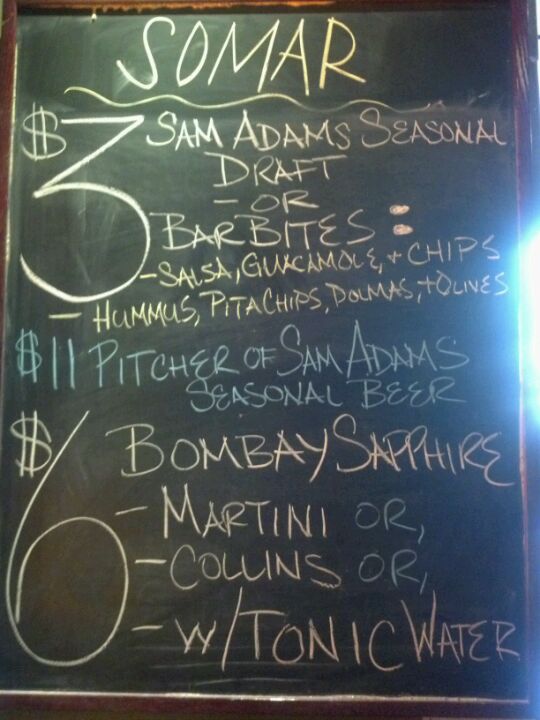 SOMAR
$3 SAM ADAMS SEASONAL
DRAFT
- OR
BAR BITES:
- SALSA, GUACAMOLE, + CHIPS
- HUMMUS, PITA CHIPS, DOLMAS, + OLIVES
$11 PITCHER OF SAM ADAMS
SEASONAL BEER
$6 BOMBAY SAPPHIRE
- MARTINI OR,
- COLLINS OR,
- W/TONIC WATER